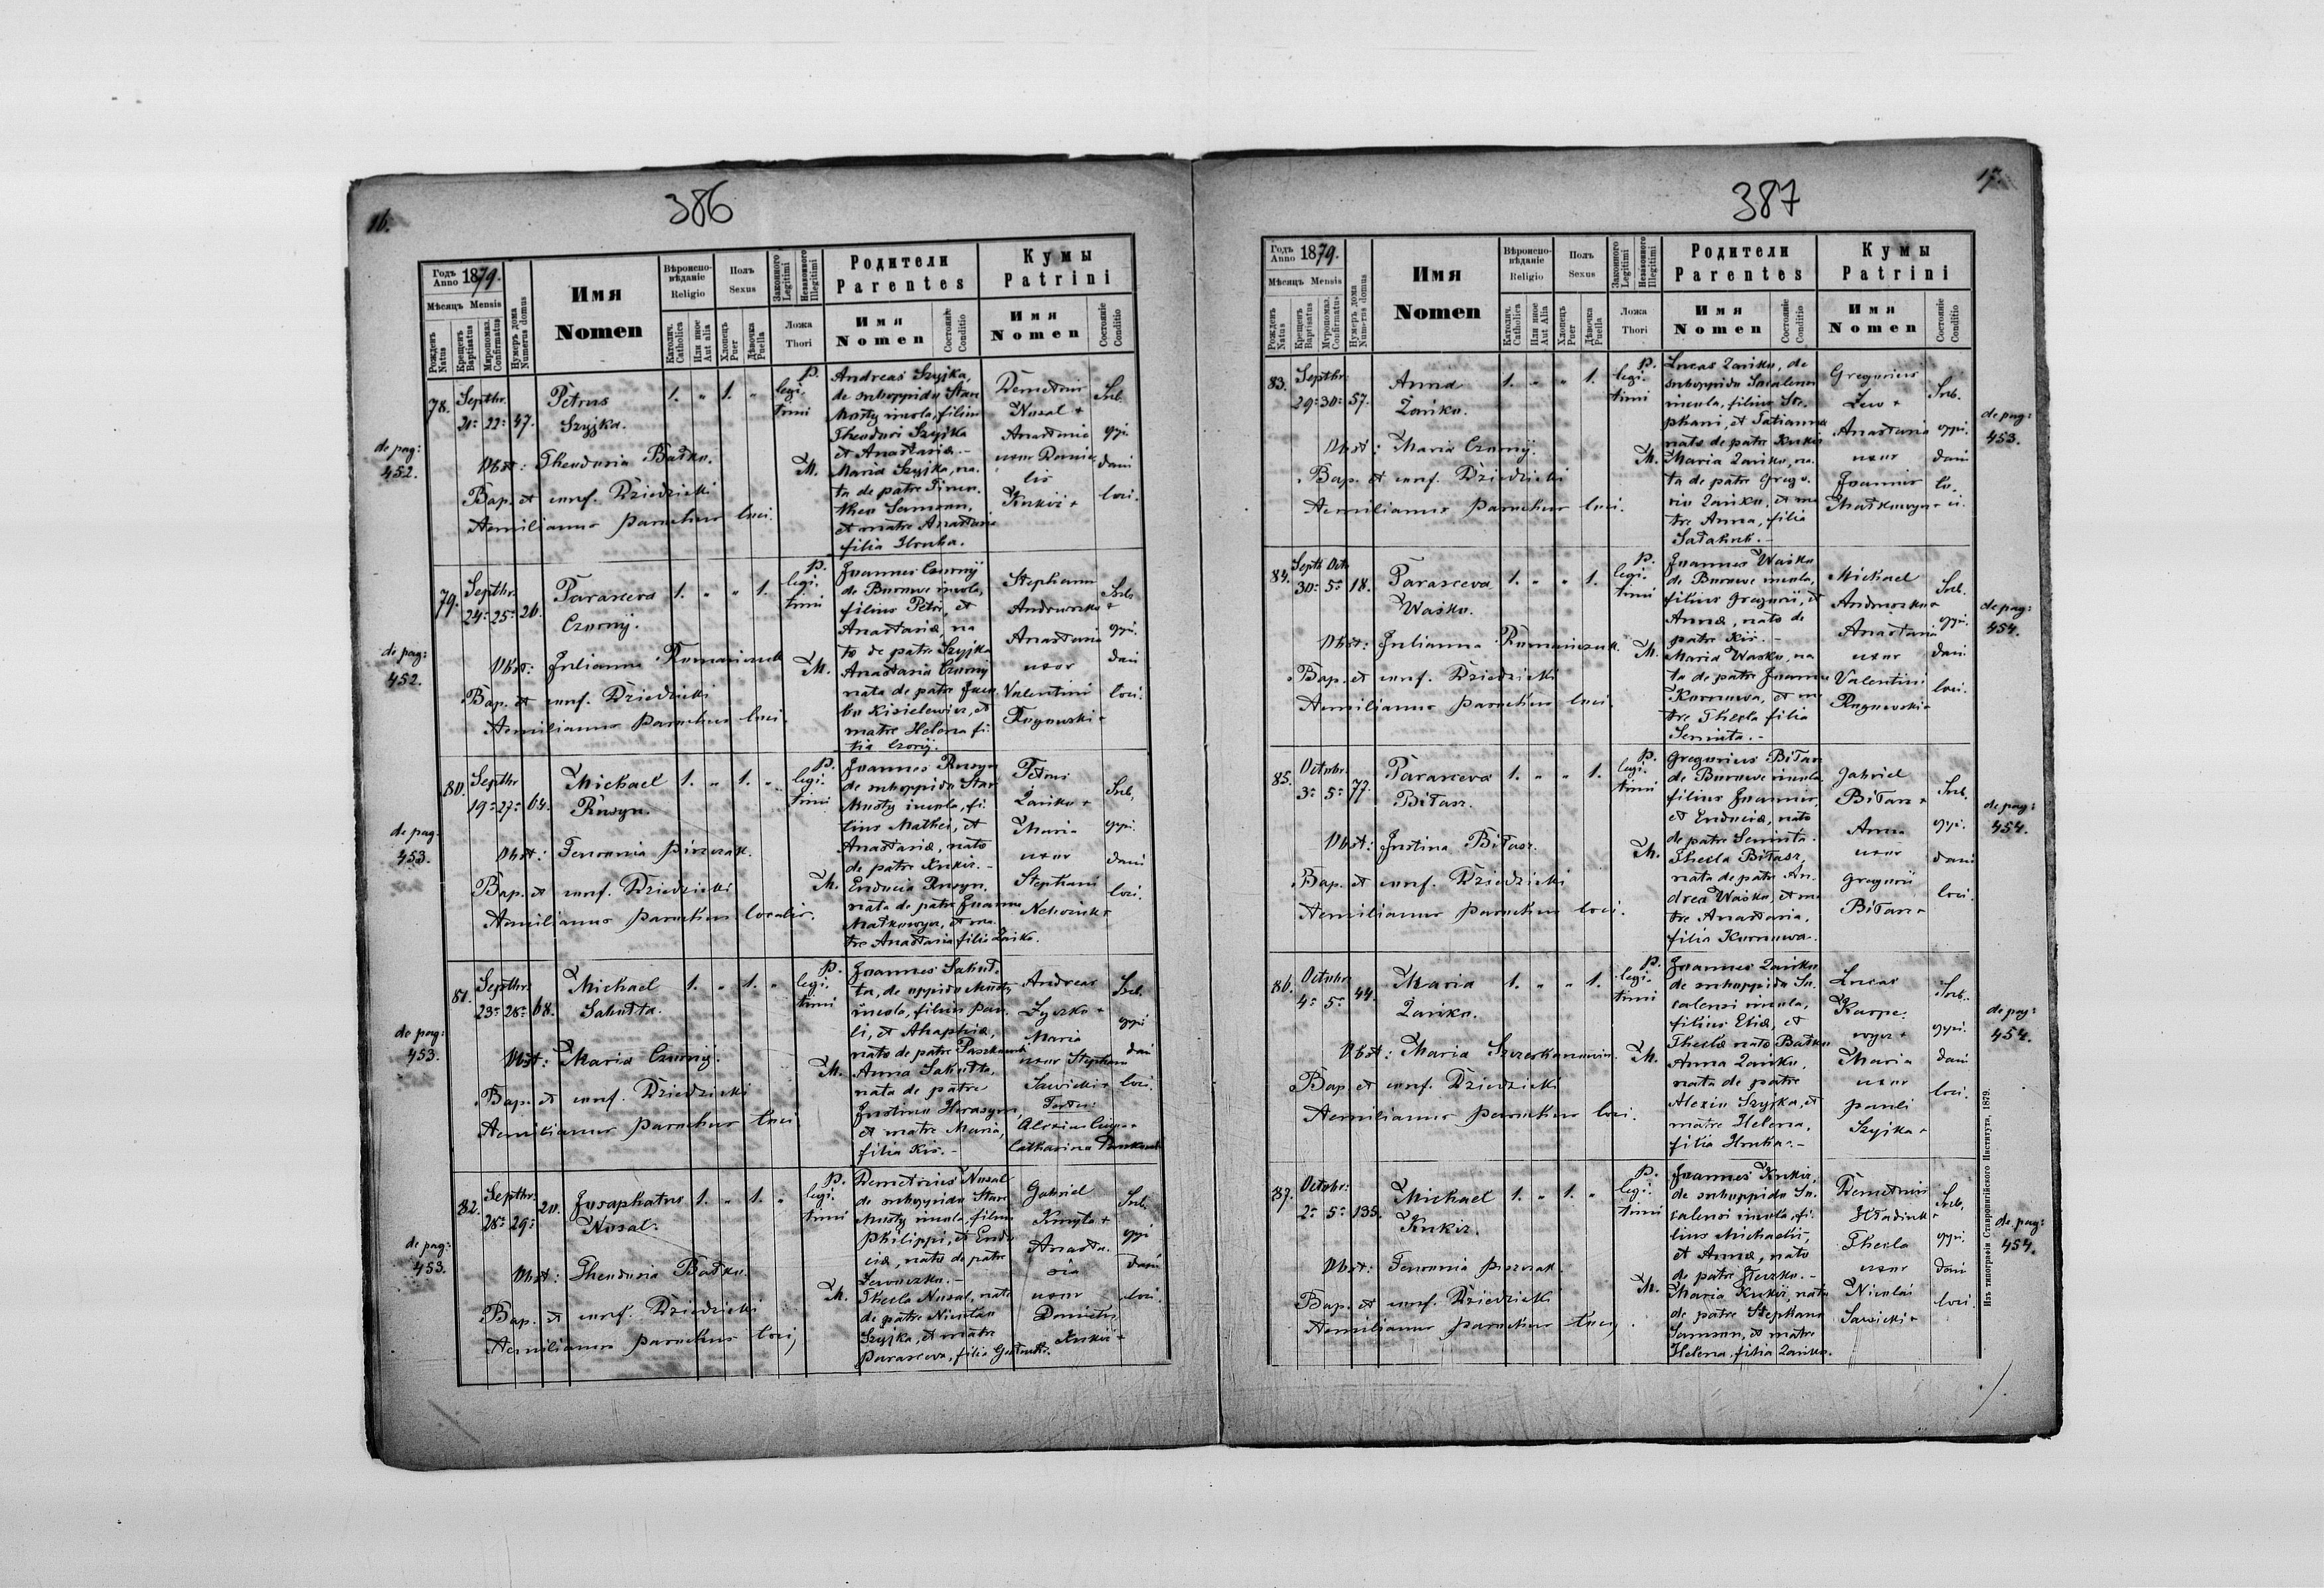 16.
386
Годъ Anno 1879.
Мѣсяцъ Mensis
Рожденъ Natus
Крещенъ Baptisatus
Миропомаз. Confirmatus
Нумеръ дома Numerus domus
Имя
Nomen
Вѣроиспо-
вѣданіе
Religio
Католич. Catholica
Или иное Aut alia
Полъ
Sexus
Хлопецъ Puer
Дѣвочка Puella
Законного Legitimi
Незаконного Illegitimi
Ложа
Thori
Родители
Parentes
Имя
Nomen
Состояніе
Conditio
Кумы
Patrini
Имя
Nomen
Состояніе
Conditio
de pag: 452.
78. Septbr. 21= 22= 47.
Petrus
Szyjka.
1. „ 1. „
legi-
timi
Obst: Theodosia Bałko.
Bap. et conf. Dziedzicki
Aemilianus parochus loci.
P. Andreas Szyjka,
de suboppido Stare
Miasty incola, filius
Theodori Szyjka
et Anastasiæ.-
M. Maria Szyjka, na-
ta de patre Timo-
theo Samson,
et matre Anastasia
filia Hruba.
Demetrius
Nosal +
Anastasia
uxor Danie-
lis
Kukiz +
Sub.
oppi-
dani
loci.
de pag: 452.
79. Septbr. 24= 25= 26.
Parasceva
Czornij.
1. „ „ 1.
legi-
timi
Obst: Julianna Romaniszak
Bap. et conf. Dziedzicki
Aemilianus parochus loci.
P. Joannes Czornij
de Burowe incola,
filius Petri, et
Anastasiæ, na-
to de patre Szyjka
M. Anastasia Czornij
nata de patre Jaco-
bo Kisielewicz, et
matre Helena fi-
lia Czornij.
Stephanus
Andruszko +
Anastasia
uxor
Valentini
Rogowski +
Sub.
oppi-
dani
loci.
de pag: 453.
80. Septbr 19= 27= 64.
Michael
Rusyn.
1. „ 1. „
legi-
timi
Obst: Fenonnia Piszczak.
Bap. et conf. Dziedzicki
Aemilianus parochus localis.
P. Joannes Rusyn
de suboppido Stare
Miasty incola, fi-
lius Mathei, et
Anastasiæ, nato
de patre Kukiz.-
M. Eudocia Rusyn,
nata de patre Joanne
Małkowycz, et ma-
tre Anastasia filia Zańko.
Petrus
Zańko +
Maria
uxor
Stephani
Sub.
oppi-
dani
loci.
de pag: 453.
81. Septbr. 23= 28= 68.
Michael
Sahutta.
1. „ 1. „
legi-
timi
Obst: Maria Czornij.
Bap. et conf. Dziedzicki
Aemilianus parochus loci.
P. Joannes Sahut-
ta, de oppido Miasty
incola, filius Pau-
li, et Ahaphiæ,
nato de patre
M. Anna Sahutta,
nata de patre
Justino Herasym,
et matre Maria,
filia Kis.-
Andreas
Maria
uxor Stephani
Sawicki +
Testes:
Catharina
Sub.
oppi-
dani
loci.
de pag: 453.
82. Septbr. 28= 29= 20.
Josaphatus
Nosal.
1. „ 1. „
legi-
timi
Obst: Theodosia Bałko.
Bap. et conf. Dziedzicki
Aemilianus parochus loci,
P. Demetrius Nosal
de suboppido Stare
Miasty incola, filius
Philippi, et Eudo-
ciæ, nato de patre
M. Thecla Nosal, nata
de patre Nicolao
Szyjka, et matre
Parasceva, filia
Gabriel
Anasta-
sia
uxor
Danielis
Kukiz +
Sub.
oppi-
dani
loci.
17.
387
Годъ Anno 1879.
Мѣсяцъ Mensis
Рожденъ Natus
Крещенъ Baptisatus
Муропомаз. Confirmatus
Нумеръ дома Numerus domus
Имя
Nomen
Вѣроиспо-
вѣданіе
Religio
Католич. Catholica
Или иное Aut Alia
Полъ
Sexus
Хлопецъ Puer
Дѣвочка Puella
Законного Legitimi
Незаконного Illegitimi
Ложа
Thori
Родители
Parentes
Имя
Nomen
Состояніе
Conditio
Кумы
Patrini
Имя
Nomen
Состояніе
Conditio
83. Septbr. 29= 30= 57.
Anna
Zańko.
1. „ „ 1.
legi-
timi
Obst: Maria Czornij.
Bap. et conf. Dziedzicki
Aemilianus parochus loci.
P. Lucas Zańko, de
suboppido Sucalensi
incola, filius Ste-
phani, et Tatianna
nato de patre Kukiz
M. Maria Zańko, na-
ta de patre Grego-
rio Zańko, et ma-
tre Anna, filia
Sałahub.-
Gregorius
Lew +
Anastasia
uxor
Joannis
Małkowycz +
Sub.
oppi-
dani
lo-
ci.
de pag: 453.
84. Septb. Oct. 30= 5= 18.
Parasceva
Waśko.
1. „ „ 1.
legi-
timi
Obst: Julianna Romaniszak.
Bap. et conf. Dziedzicki
Aemilianus parochus loci.
P. Joannes Waśko
de Burowe incola,
filius Gregorii, et
Annæ, nato de
patre Kis.-
M. Maria Waśko, na-
ta de patre Joanne
Kornowa, et ma-
tre Thecla filia
Seniuta.-
Michael
Andruszko +
Anastasia
uxor
Valentini
Rogowski +
Sub.
oppi-
dani
loci.
de pag: 454.
85. Octobr. 3= 5= 77.
Parasceva
Biłasz.
1. „ „ 1.
legi-
timi
Obst: Justina Biłasz.
Bap. et conf. Dziedzicki
Aemilianus parochus loci.
P. Gregorius Biłasz
de Burowe incola
filius Joannis,
et Eudociæ, nato
de patre Seniuta.
M. Thecla Biłasz,
nata de patre An-
drea Waśko, et ma-
tre Anastasia,
filia Kornowa.
Gabriel
Biłasz +
Anna
uxor
Gregorii
Biłasz +
Sub.
oppi-
dani
loci.
de pag: 454.
86. Octobr. 4= 5= 44.
Maria
Zańko.
1. „ „ 1.
legi-
timi
Obst: Maria
Bap. et conf. Dziedzicki
Aemilianus parochus loci.
P. Joannes Zańko
de suboppido Su-
calensi incola,
filius Eliæ, et
Theclæ nato Bałko
M. Anna Zańko,
nata de patre
Alexio Szyjka, et
matre Helena,
filia Hruba.-
Lucas
Karpo-
wycz +
Maria
uxor
Pauli
Szyjka +
Sub.
oppi-
dani
loci.
de pag: 454.
87. Octobr: 2= 5= 135.
Michael
Kukiz.
1. „ 1. „
legi-
timi
Obst: Fenonnia Piszczak.
Bap. et conf. Dziedzicki
Aemilianus parochus loci.
P. Joannes Kukiz,
de suboppido Su-
calensi incola, fi-
lius Michaelis,
et Annæ, nato
de patre
M. Maria Kukiz, nata
de patre Stephano
Samson, et matre
Helena, filia Zańko.
Demetrius
Hładiuk +
Thecla
uxor
Nicolai
Sawicki +
Sub.
oppi-
dani
loci.
de pag: 454.
Изъ типографіи Ставропигійского Института, 1879.